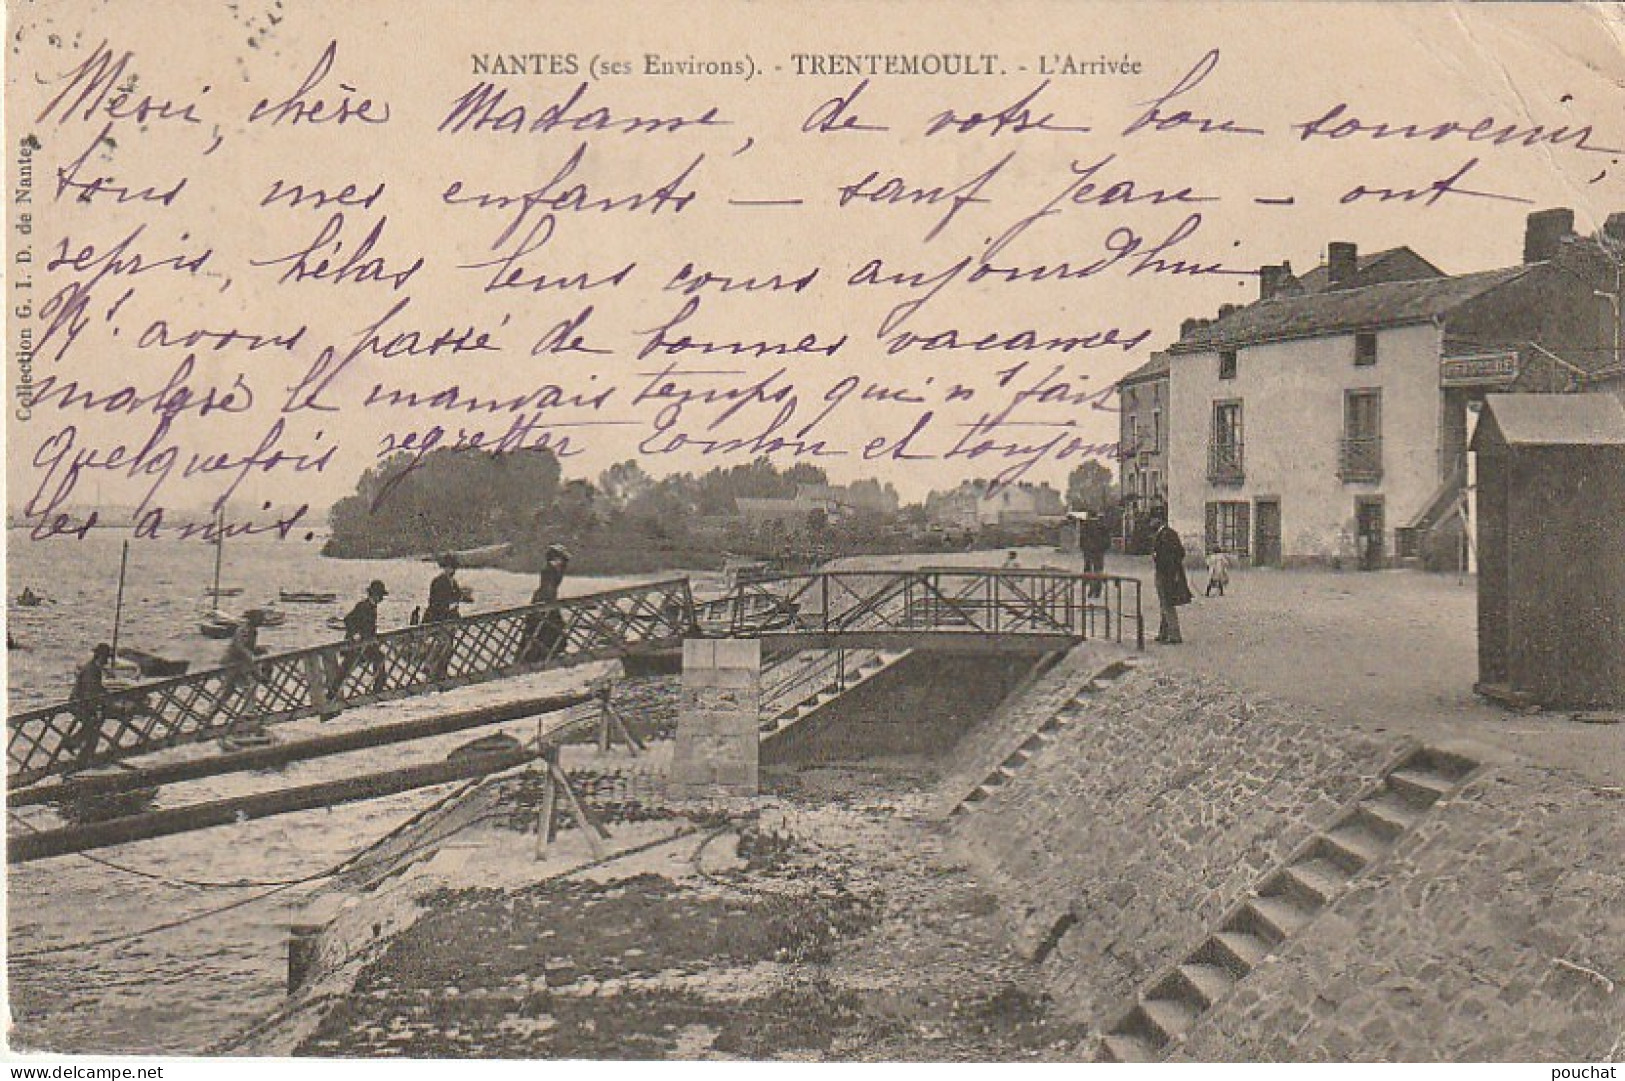 NANTES (ses Environs). - TRENTEMOULT. - L'Arrivée
Collection G. I. D. de Nantes
Merci, chère Madame, de votre bon souvenir,
tous mes enfants — sauf Jean — ont
repris, hélas leurs cours aujourd'hui.
Ns. avons passé de bonnes vacances
malgré le mauvais temps qui ns fait
quelquefois regretter Toulon et toujours
les amis.
delcampe.net
pouchat